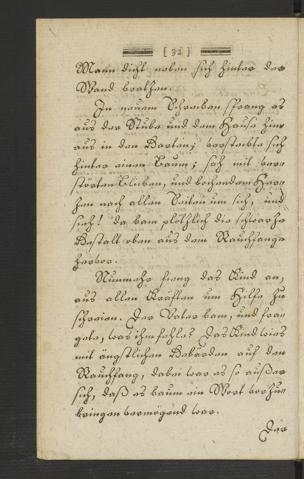 [ 32 ]
Mann dicht neben sich hinter der
Wand
In neuem Schrecken sprang es
aus der Stube und dem Hause hin-
aus in den Garten; versteckte sich
hinter einen Baum; sah mit ver-
störten Blicken, und
nach allen Seiten um sich, und
sieh! da kam plötzlich die schwarze
Gestalt oben aus dem Rauchfange
hervor.
Nunmehr fieng das Kind an,
aus allen Kräften um Hilfe zu
schreien. Der Vater kam, und fra-
gete, was ihm fehle? Das Kind wies
mit ängstlichen Gebärden auf den
Rauchfang, dabei war es so außer
sich, daß es kaum ein Wort vorzu-
bringen vermögend war.
Der